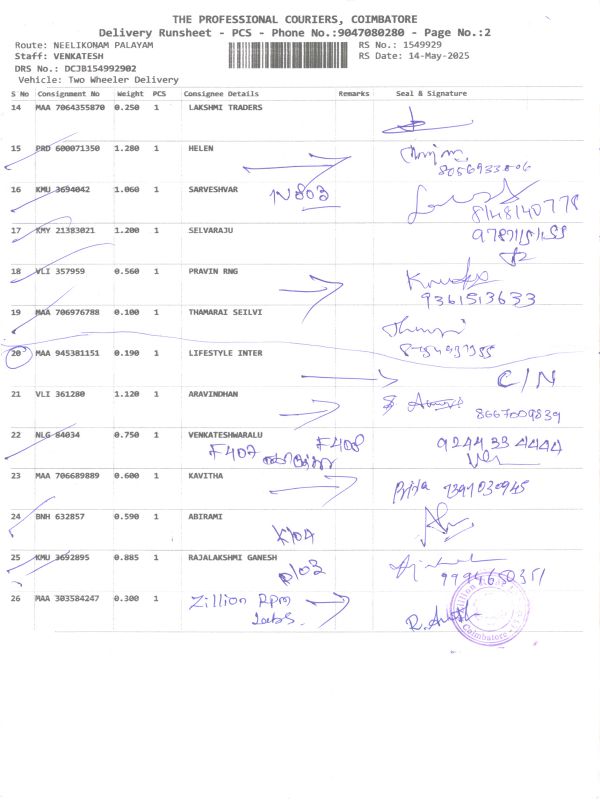 THE PROFESSIONAL COURIERS, COIMBATORE
Delivery Runsheet - PCS - Phone No.:9047080280 - Page No.:2
Route: NEELIKONAM PALAYAM RS No.: 1549929
Staff: VENKATESH RS Date: 14-May-2025
DRS No.: DCJB154992902
Vehicle: Two Wheeler Delivery
S No Consignment No Weight PCS Consignee Details Remarks Seal & Signature
14 MAA 7064355870 0.250 1 LAKSHMI TRADERS
15 PRD 600071350 1.280 1 HELEN
8056933806
16 KMU 3694042 1.060 1 SARVESHVAR
N803
8148140778
17 KMY 21383021 1.200 1 SELVARAJU
18 VLI 357959 0.560 1 PRAVIN RNG
9361513633
19 MAA 706976788 0.100 1 THAMARAI SEILVI
20 MAA 945381151 0.190 1 LIFESTYLE INTER
C/N
21 VLI 361280 1.120 1 ARAVINDHAN
8667009839
22 NLG 84034 0.750 1 VENKATESHWARALU
F407 F408 9244334444
23 MAA 706689889 0.600 1 KAVITHA
7397030945
24 BNH 632857 0.590 1 ABIRAMI
K104
25 KMU 3692895 0.885 1 RAJALAKSHMI GANESH
D103
9994650351
26 MAA 303584247 0.300 1 Zillion Rpm
Labs.
Coimbatore